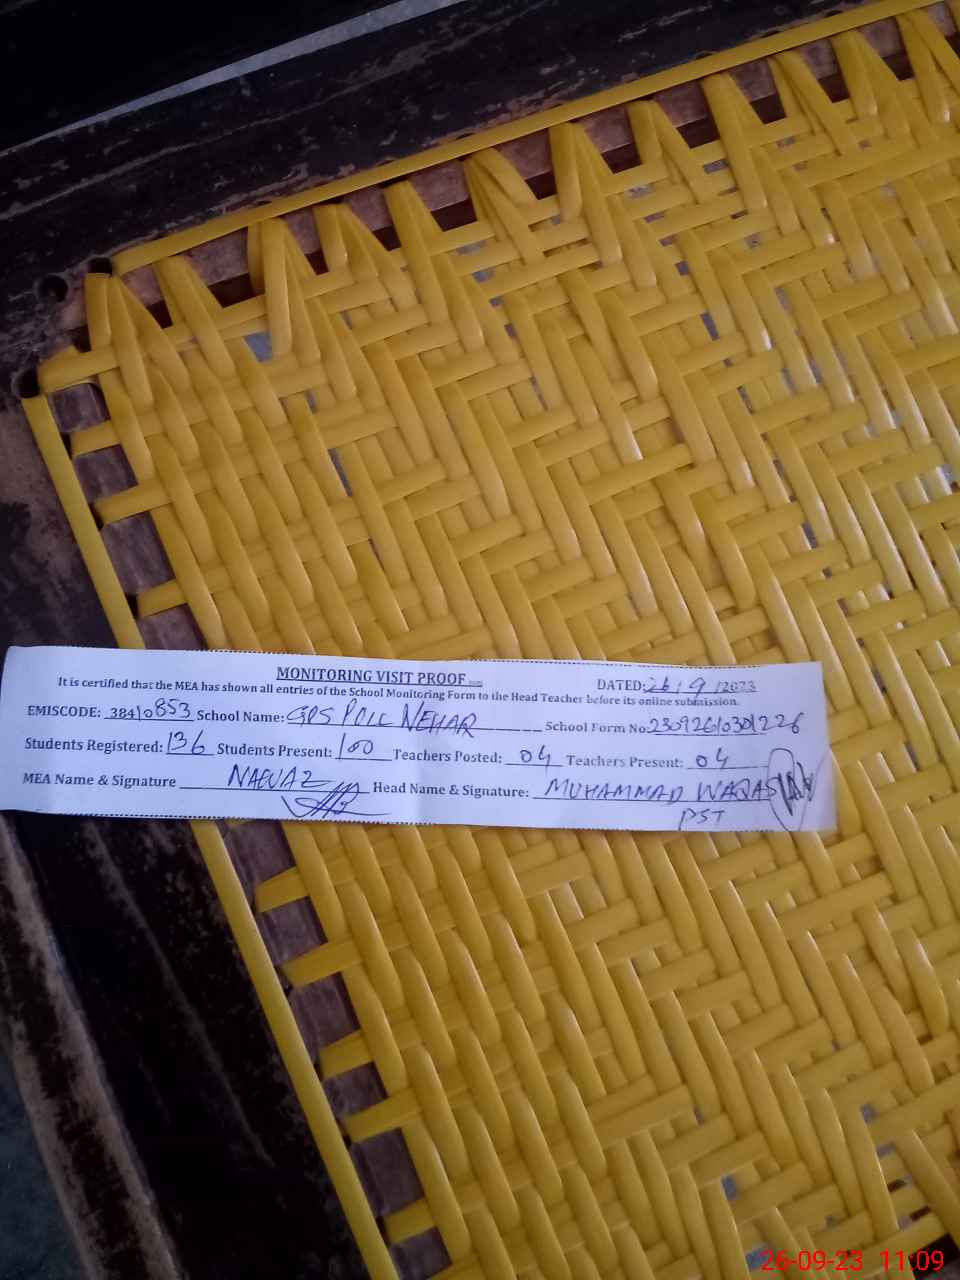 MONITORING VISIT PROOF
DATED: 26/9/2023
It is certified that the MEA has shown all entries of the School Monitoring Form to the Head Teacher before its online submission.
EMISCODE: 38410853 School Name: GPS POLL NEHAR School Form No: 23092610301226
Students Registered: 136 Students Present: 100 Teachers Posted: 04 Teachers Present: 04
MEA Name & Signature NAEVAZ Head Name & Signature: MUHAMMAD WAQAS
PST
26-09-23 11:09